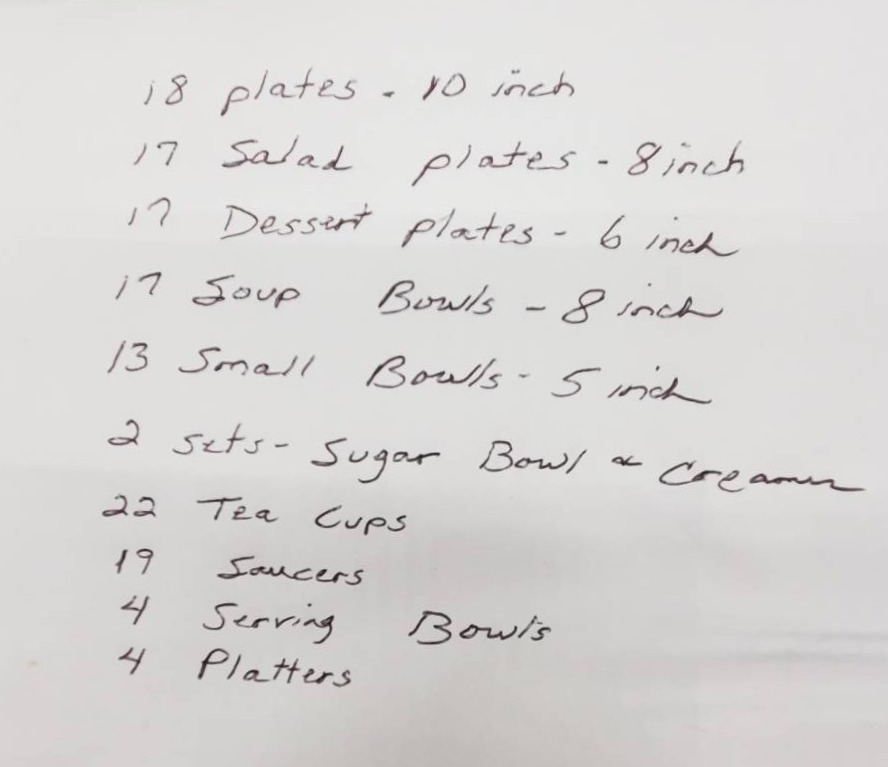 18 plates - 10 inch
17 Salad plates - 8 inch
17 Dessert plates - 6 inch
17 Soup Bowls - 8 inch
13 Small Bowls - 5 inch
2 sets - Sugar Bowl & Creamer
22 Tea Cups
19 Saucers
4 Serving Bowls
4 Platters